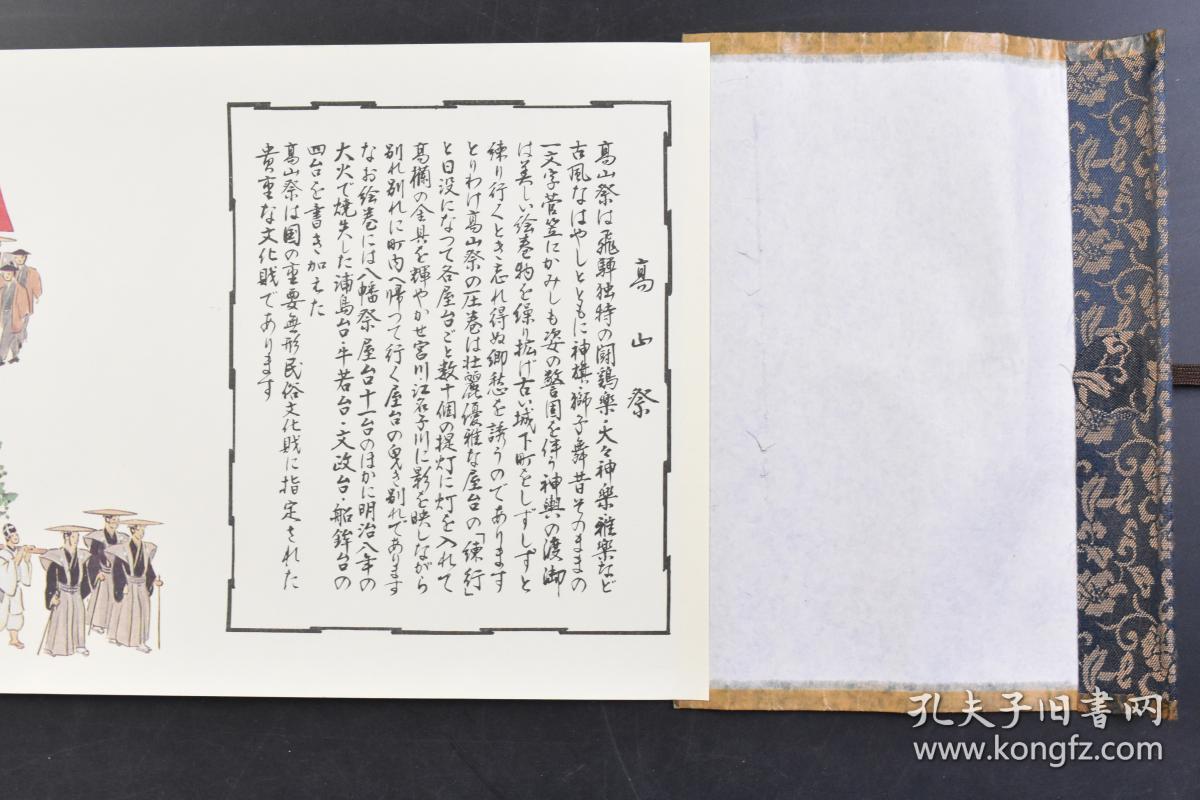 高山祭
高山祭は飛騨独特の闘鶏楽・大々神楽・雅楽など
古風なはやしとともに神旗・獅子舞昔そのままの
一文字菅笠にかみしも姿の警固を伴う神輿の渡御
は美しい絵巻物を繰り拡げ古い城下町をしずしずと
練り行くとき忘れ得ぬ郷愁を誘うのであります
とりわけ高山祭の圧巻は壮麗優雅な屋台の「練行」
と日没になって各屋台ごと数十個の提灯に灯を入れて
高欄の金具を輝やかせ宮川・江名子川に影を映しながら
別れ別れに町内へ帰って行く屋台の曳き別れであります
なお絵巻には八幡祭屋台十一台のほかに明治八年の
大火で焼失した浦島台・牛若台・文政台・船鉾台の
四台を書き加えた
高山祭は国の重要無形民俗文化財に指定された
貴重な文化財であります
孔夫子旧书网
www.kongfz.com